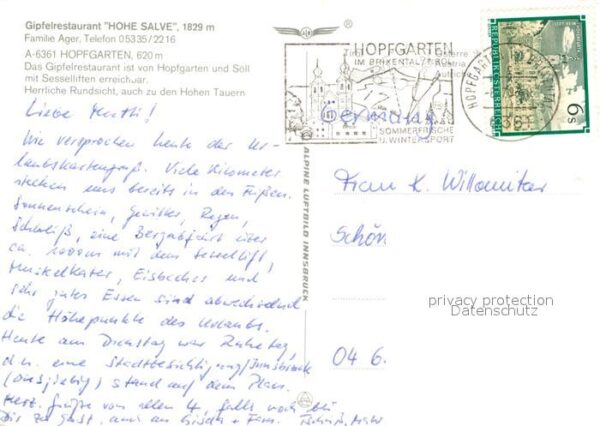 Gipfelrestaurant "HOHE SALVE", 1829 m
Familie Ager, Telefon 05335/2216
A-6361 HOPFGARTEN, 620 m
Das Gipfelrestaurant ist von Hopfgarten und Söll
mit Sesselliften erreichbar.
Herrliche Rundsicht, auch zu den Hohen Tauern
Liebe Mutti!
Wie versprochen heute der Ur-
laubskartengruß. Viele Kilometer
stecken uns bereits in den Füßen.
Sonnenschein, Gewitter, Regen,
eine Bergabfahrt über
ca. 1000m mit dem Sessellift,
Muskelkater, Eisbecher und
sehr gutes Essen sind abwechselnd
die Höhepunkte des Urlaubs.
Heute am Dienstag war Ruhetag,
d.h. eine Stadtbesichtigung/Innsbruck
stand auf dem Plan.
Herz. Grüße von allen 4, falls noch bei
Dir zu Gast, auch an + Fam.
ALPINE LUFTBILD INNSBRUCK
HOPFGARTEN
IM BRIXENTAL TIROL
SOMMERFRISCHE
U. WINTERSPORT
Germany
HOPFGARTEN
6361
REPUBLIK ÖSTERREICH
6s
Frau K. Willomitzer
Schön
privacy protection
Datenschutz
04 6.